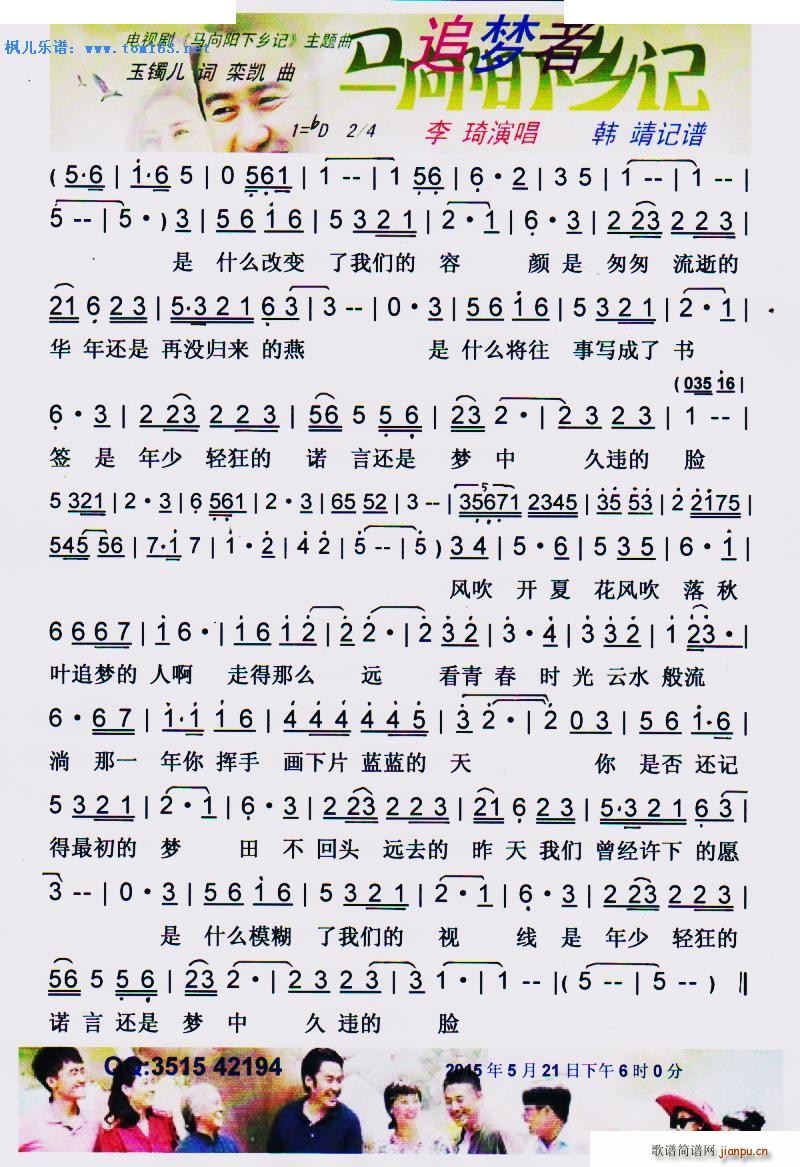 枫儿乐谱：www.tom163.net
电视剧《马向阳下乡记》主题曲
马向阳下乡记
追梦者
玉镯儿 词 栾凯 曲
1=♭D 2/4 李 琦演唱 韩 靖记谱
( 5·6 | 1·6 5 | 0 561 | 1 -- | 1 56 | 6·2 | 3 5 | 1 -- | 1 -- |
5 -- | 5· ) 3 | 5 6 1 6 | 5 3 2 1 | 2·1 | 6·3 | 2 23 2 2 3 |
是 什么改变 了我们的 容 颜 是 匆匆 流逝的
21 6 2 3 | 5·3 2 1 6 3 | 3 -- | 0·3 | 5 6 1 6 | 5 3 2 1 | 2·1 |
华 年还是 再没归来 的燕 是 什么将往 事写成了 书
(035 16 |
6·3 | 2 23 2 2 3 | 56 5 5 6 | 23 2· | 2 3 2 3 | 1 -- |
签 是 年少 轻狂的 诺 言还是 梦 中 久违的 脸
5 321 | 2·3 | 6 561 | 2·3 | 65 52 | 3 -- | 35671 2345 | 35 53 | 2 2175 |
545 56 | 7·1 7 | 1·2 | 4 2 | 5 -- | 5 ) 3 4 | 5·6 | 5 3 5 | 6·1 |
风吹 开 夏 花风吹 落 秋
6 6 6 7 | 1 6· | 1 6 1 2 | 2 2· | 2 3 2 | 3·4 | 3 3 2 | 1 23· |
叶追梦的 人啊 走得那么 远 看青 春 时 光 云水 般流
6·6 7 | 1·1 1 6 | 4 4 4 4 4 5 | 3 2· | 2 0 3 | 5 6 1·6 |
淌 那一 年你 挥手 画下片 蓝蓝的 天 你 是否 还记
5 3 2 1 | 2·1 | 6·3 | 2 23 2 2 3 | 21 6 2 3 | 5·3 2 1 6 3 |
得最初的 梦 田 不 回头 远去的 昨 天 我们 曾经许下 的愿
3 -- | 0·3 | 5 6 1 6 | 5 3 2 1 | 2·1 | 6·3 | 2 23 2 2 3 |
是 什么模糊 了我们的 视 线 是 年少 轻狂的
56 5 5 6 | 23 2· | 2 3 2 3 | 3 1· | 1 -- |( 5 -- | 5 -- ) ||
诺 言 还是 梦 中 久 违的 脸
QQ:3515 42194 2015年5月21日下午6时0分
歌谱简谱网 jianpu.cn